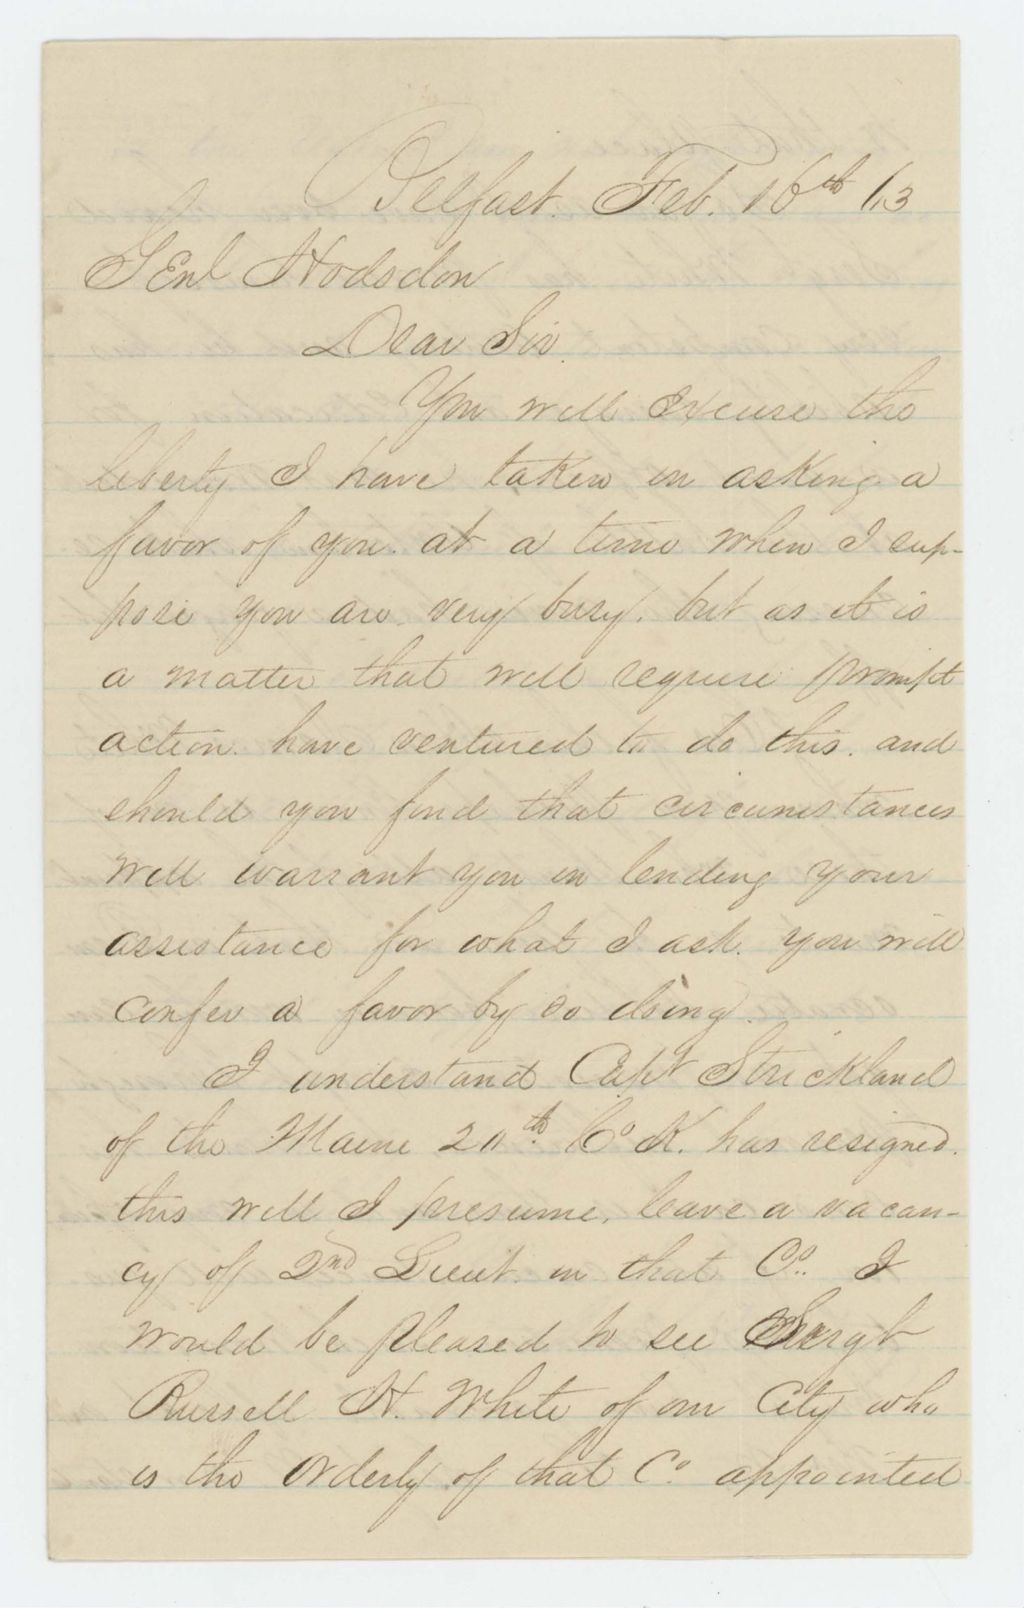 Belfast. Feb. 16th 63
Genl Hodsdon
Dear Sir.
You will Excuse the
liberty I have taken in asking a
favor of you. at a time when I sup-
pose you are very busy. but as it is
a matter that will require prompt
action. have ventured to do this. and
should you find that circumstances
will warrant you in lending your
assistance for what I ask. you will
confer a favor by so doing.
I understand Capt Strickland
of the Maine 20th. Co K. has resigned.
this will I presume, leave a vacan-
cy of 2nd Lieut. in that Co. I
would be pleased to see Sergt
Russell H. White of our City who
is the Orderly of that Co appointed